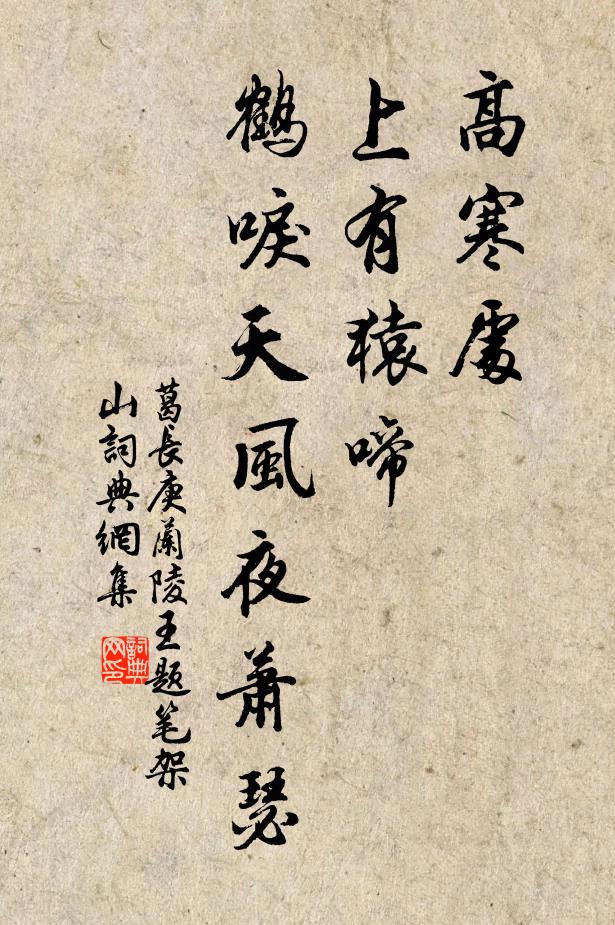 高寒處
上有猿啼
鶴唳天風夜蕭瑟
葛長庚蘭陵王題笔架
山詞典網集
詞典
网印